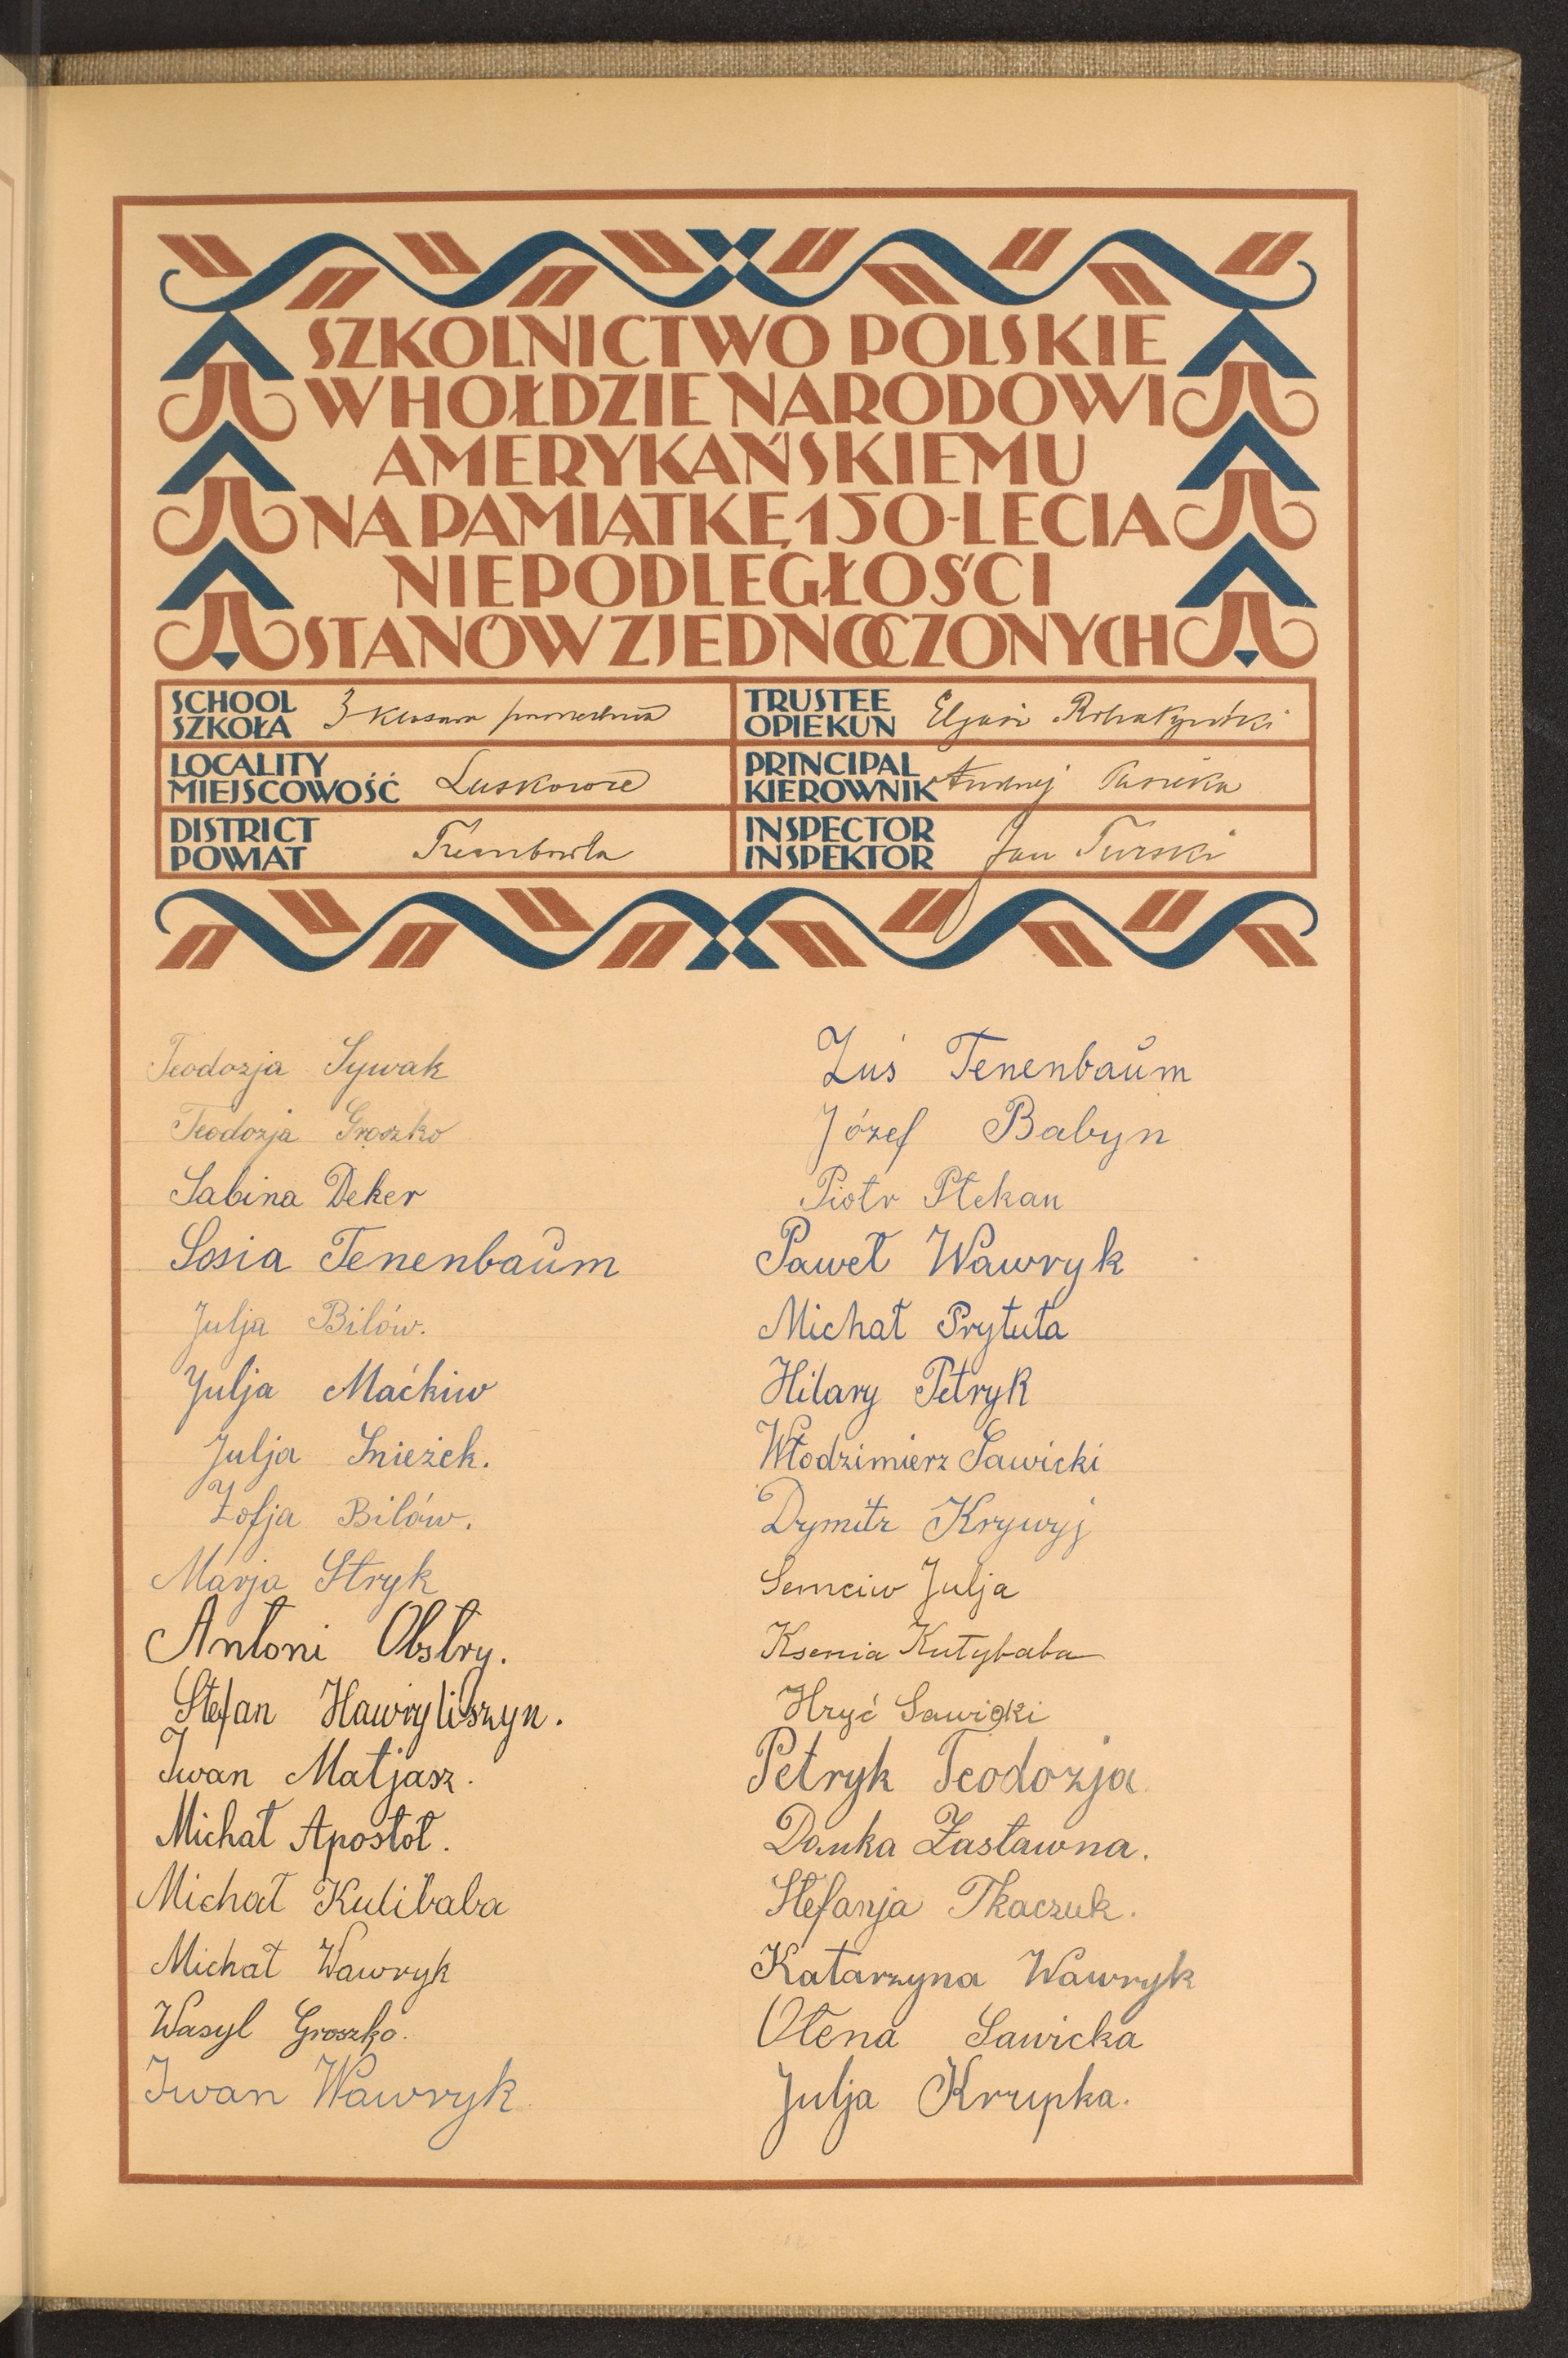 SZKOLNICTWO POLSKIE
W HOŁDZIE NARODOWI
AMERYKAŃSKIEMU
NA PAMIĄTKĘ 150-LECIA
NIEPODLEGŁOŚCI
STANÓW ZJEDNOCZONYCH
SCHOOL
SZKOŁA 3 klasowa powszechna
TRUSTEE
OPIEKUN Eljasz Rohatyński
LOCALITY
MIEJSCOWOŚĆ Laskowce
PRINCIPAL
KIEROWNIK Andrzej
DISTRICT
POWIAT Trembowla
INSPECTOR
INSPEKTOR Jan Turski
Teodozja Sywak
Teodozja Groszko
Sabina Deker
Sosia Tenenbaŭm
Julja Bilów.
Julja Maćkiw
Julja Snieżek.
Zofja Bilów.
Marja Stryk
Antoni Obstry.
Stefan Hawryliszyn.
Iwan Matjasz.
Michał Apostoł.
Michał Kulibaba
Michał Wawryk
Wasyl Groszko.
Iwan Wawryk
Zuś Tenenbaŭm
Józef Babyn
Piotr Ptekan
Paweł Wawryk
Michał Prytuła
Hilary Petryk
Włodzimierz Sawicki
Dymitr Krywyj
Semciw Julja
Ksenia Kułybaba
Hryć Sawicki
Petryk Teodozja
Danka Zastawna.
Stefanja Tkaczuk.
Katarzyna Wawryk
Ołena Sawicka
Julja Krupka.